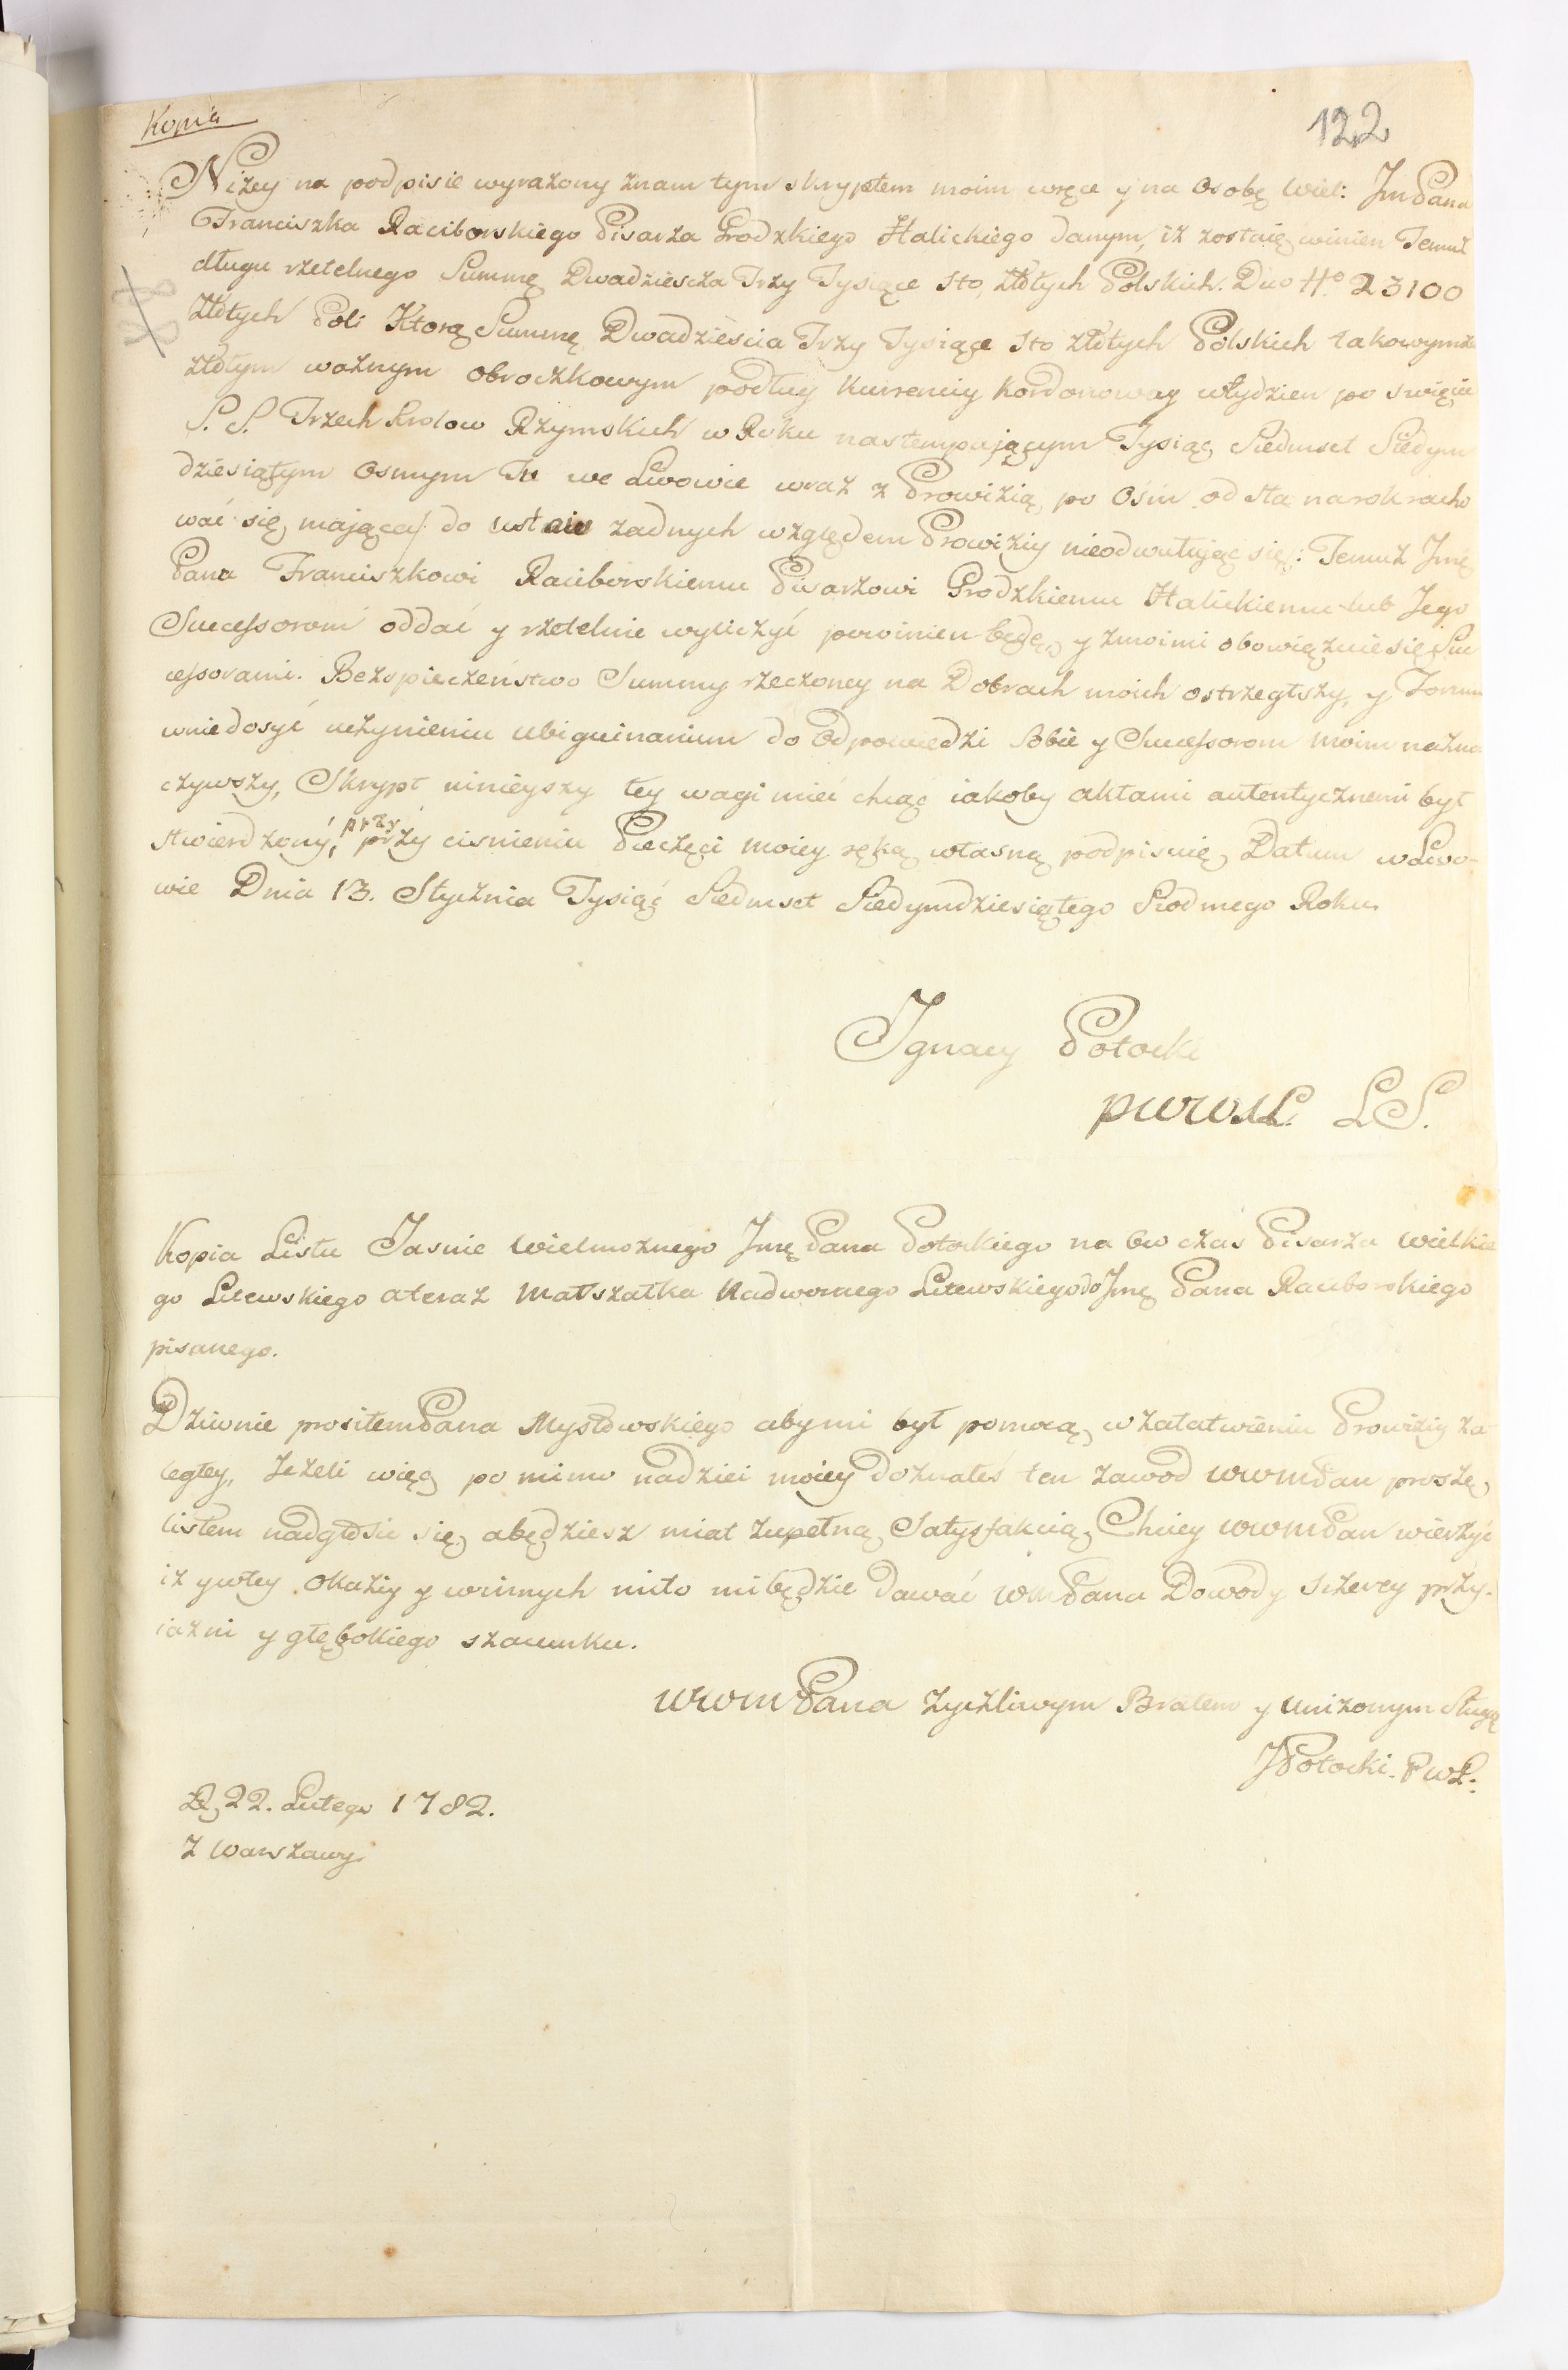 Kopia
122
Niżey na podpisie wyrażony znam tym skryptem moim w ręce y na Osobę Wiel: Jm Pana
Franciszka Raciborskiego Pisarza Grodzkiego Halickiego danym, iż zostaię winien Temuż
długu rzetelnego Summę Dwadziescza Trzy Tysiące Sto, Złotych Polskich. Dico No 23100
Złotych Pol: Ktorą Summę Dwadzieścia Trzy Tysiące Sto Złotych Polskich takowymże
złotym ważnym obrączkowym podług kurrenciy kordonowey w tydzien po swięcie
S. S. Trzech Krolow Rzymskich w Roku następuiącym Tysiąc Siedmset Siedym
dziesiątym Osmym Tu we Lwowie wraz z Prowizią po Ośm od sta na rok racho
wać się maiącą /: do ustaw żadnych względem Prowiziy nieodwołuiąc się :/ Temuż Jmę
Pana Franciszkowi Raciborskiemu Pisarzowi Grodzkiemu Halickiemu lub Jego
Successorom oddać y rzetelnie wyliczyć powinien będę, y z moimi obowiązuie się Suc
cessorami. Bezspieczeństwo Summy rzeczoney na Dobrach moich ostrzegłszy, y Forum
w niedosyć uczynieniu ubiquinarium do Odpowiedzi Sobie y Successorom moim nazna
czywszy, Skrypt ninieyszy tey wagi mieć chcąc iakoby aktami autentycznemi był
stwierdzony, przy
przy ciśnieniu Pieczęci moiey ręką własną podpisuię, Datum w Lwo-
wie Dnia 13. Stycznia Tysiąć Siedmset Siedymdziesiątego Siodmego Roku
Ignacy Potocki
PWWXL. LS.
Kopia Listu Jasnie Wielmoznego Jmę Pana Potockiego na ow czas Pisarza Wielkie
go Litewskiego a teraz Marszałka Nadwornego Litewskiego do Jmę Pana Raciborskiego
pisanego.
Dziwnie prosiłem Pana Mysłowskiego aby mi był pomocą w załatwieniu Prowiziy za
ległey, Jeżeli więc pomimo nadziei moiey doznałeś ten zawod WWMPan proszę
listem nadgłosić się, a będziesz miał zupełną Satysfakcią, Chciey WWMPan wierzyć
iż y w tey okaziy y w innych miło mi będzie dawać WMPana Dowody szczerey przy-
iaźni y głębokiego szacunku.
WWMPana życzliwym Bratem y uniżonym Sługą
JPotocki. P W L:
D. 22. Lutego 1782.
Z Warszawy